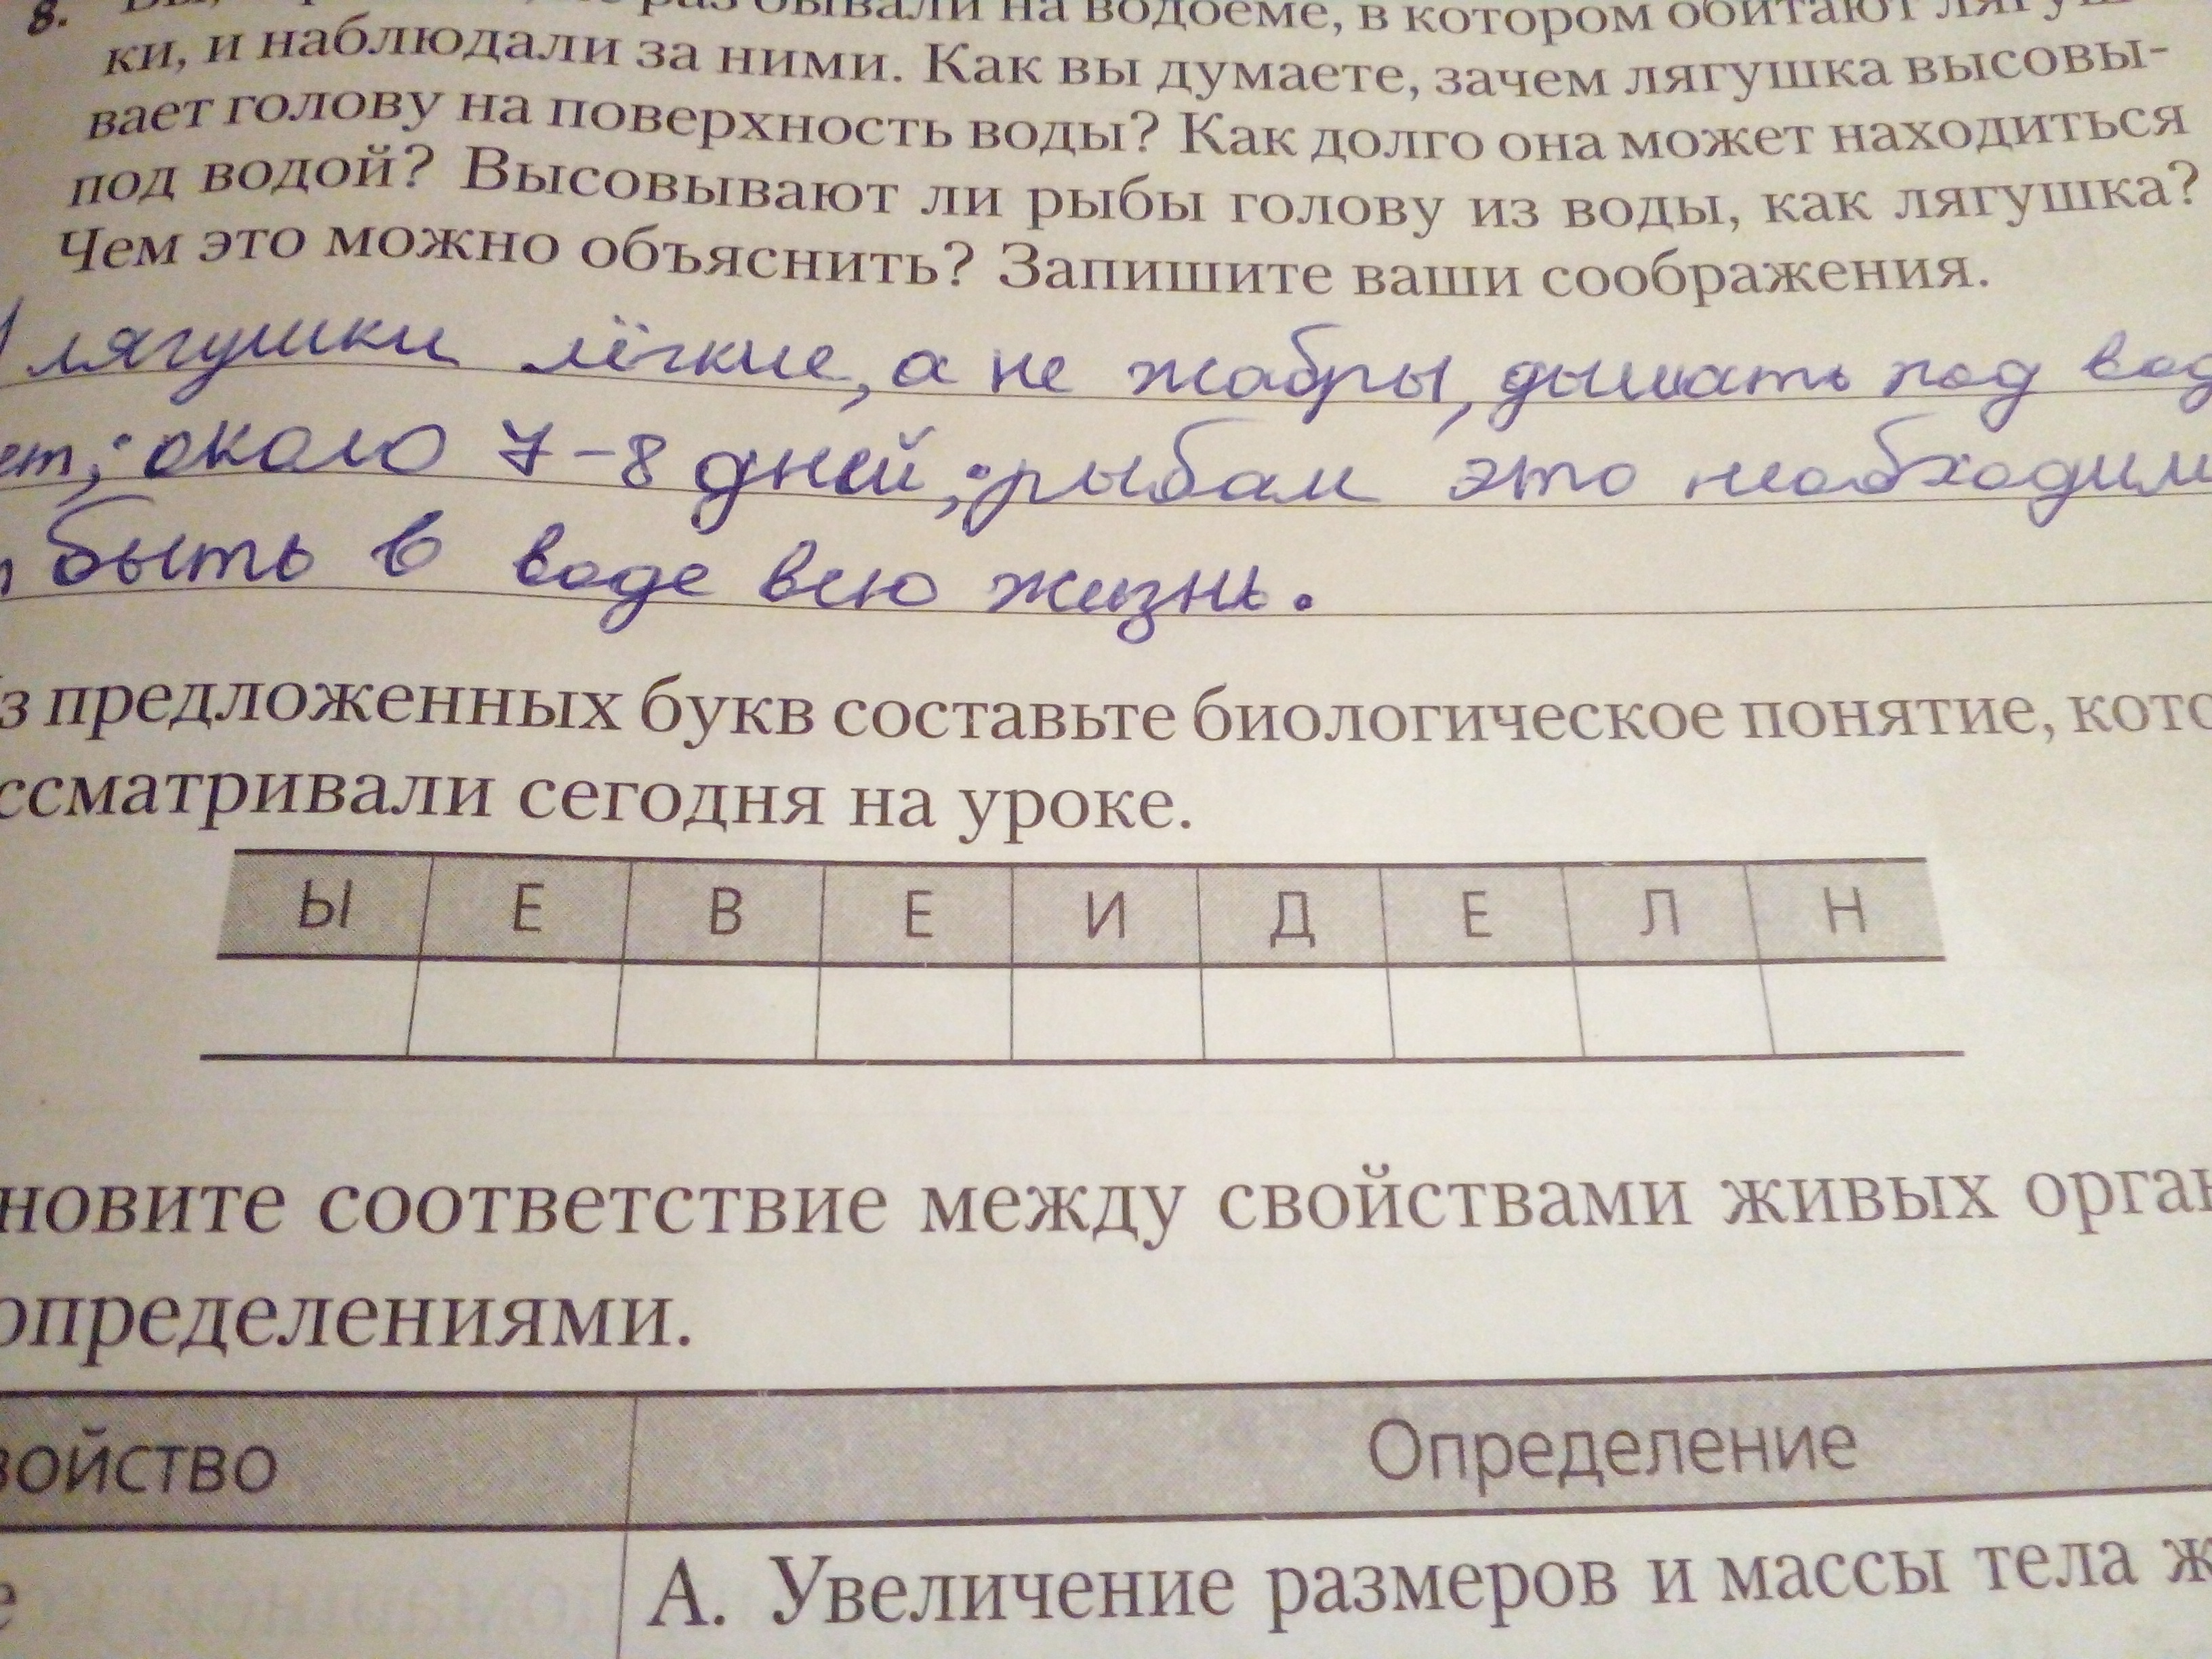 8. бывали на водоёме, в котором обитают лягуш-
ки, и наблюдали за ними. Как вы думаете, зачем лягушка высовы-
вает голову на поверхность воды? Как долго она может находиться
под водой? Высовывают ли рыбы голову из воды, как лягушка?
Чем это можно объяснить? Запишите ваши соображения.
лягушки лёгкие, а не жабры, дышать под вод
ет; около 7-8 дней; рыбам это необходим
быть в воде всю жизнь.
з предложенных букв составьте биологическое понятие, кото
ссматривали сегодня на уроке.
Ы Е В Е И Д Е Л Н
новите соответствие между свойствами живых орган
определениями.
войство Определение
е А. Увеличение размеров и массы тела ж